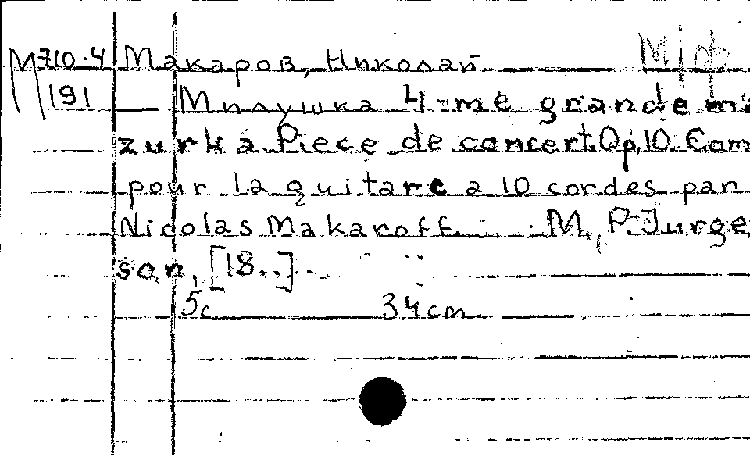 М710.4 Макаров, Николай
191 — Милушка 4-me grande ma
zurka Piece de concert. Op.10. Com
pour la guitare a 10 cordes par
Nicolas Makaroff. M., P. Jurge
son, [18..].
5с 34cm